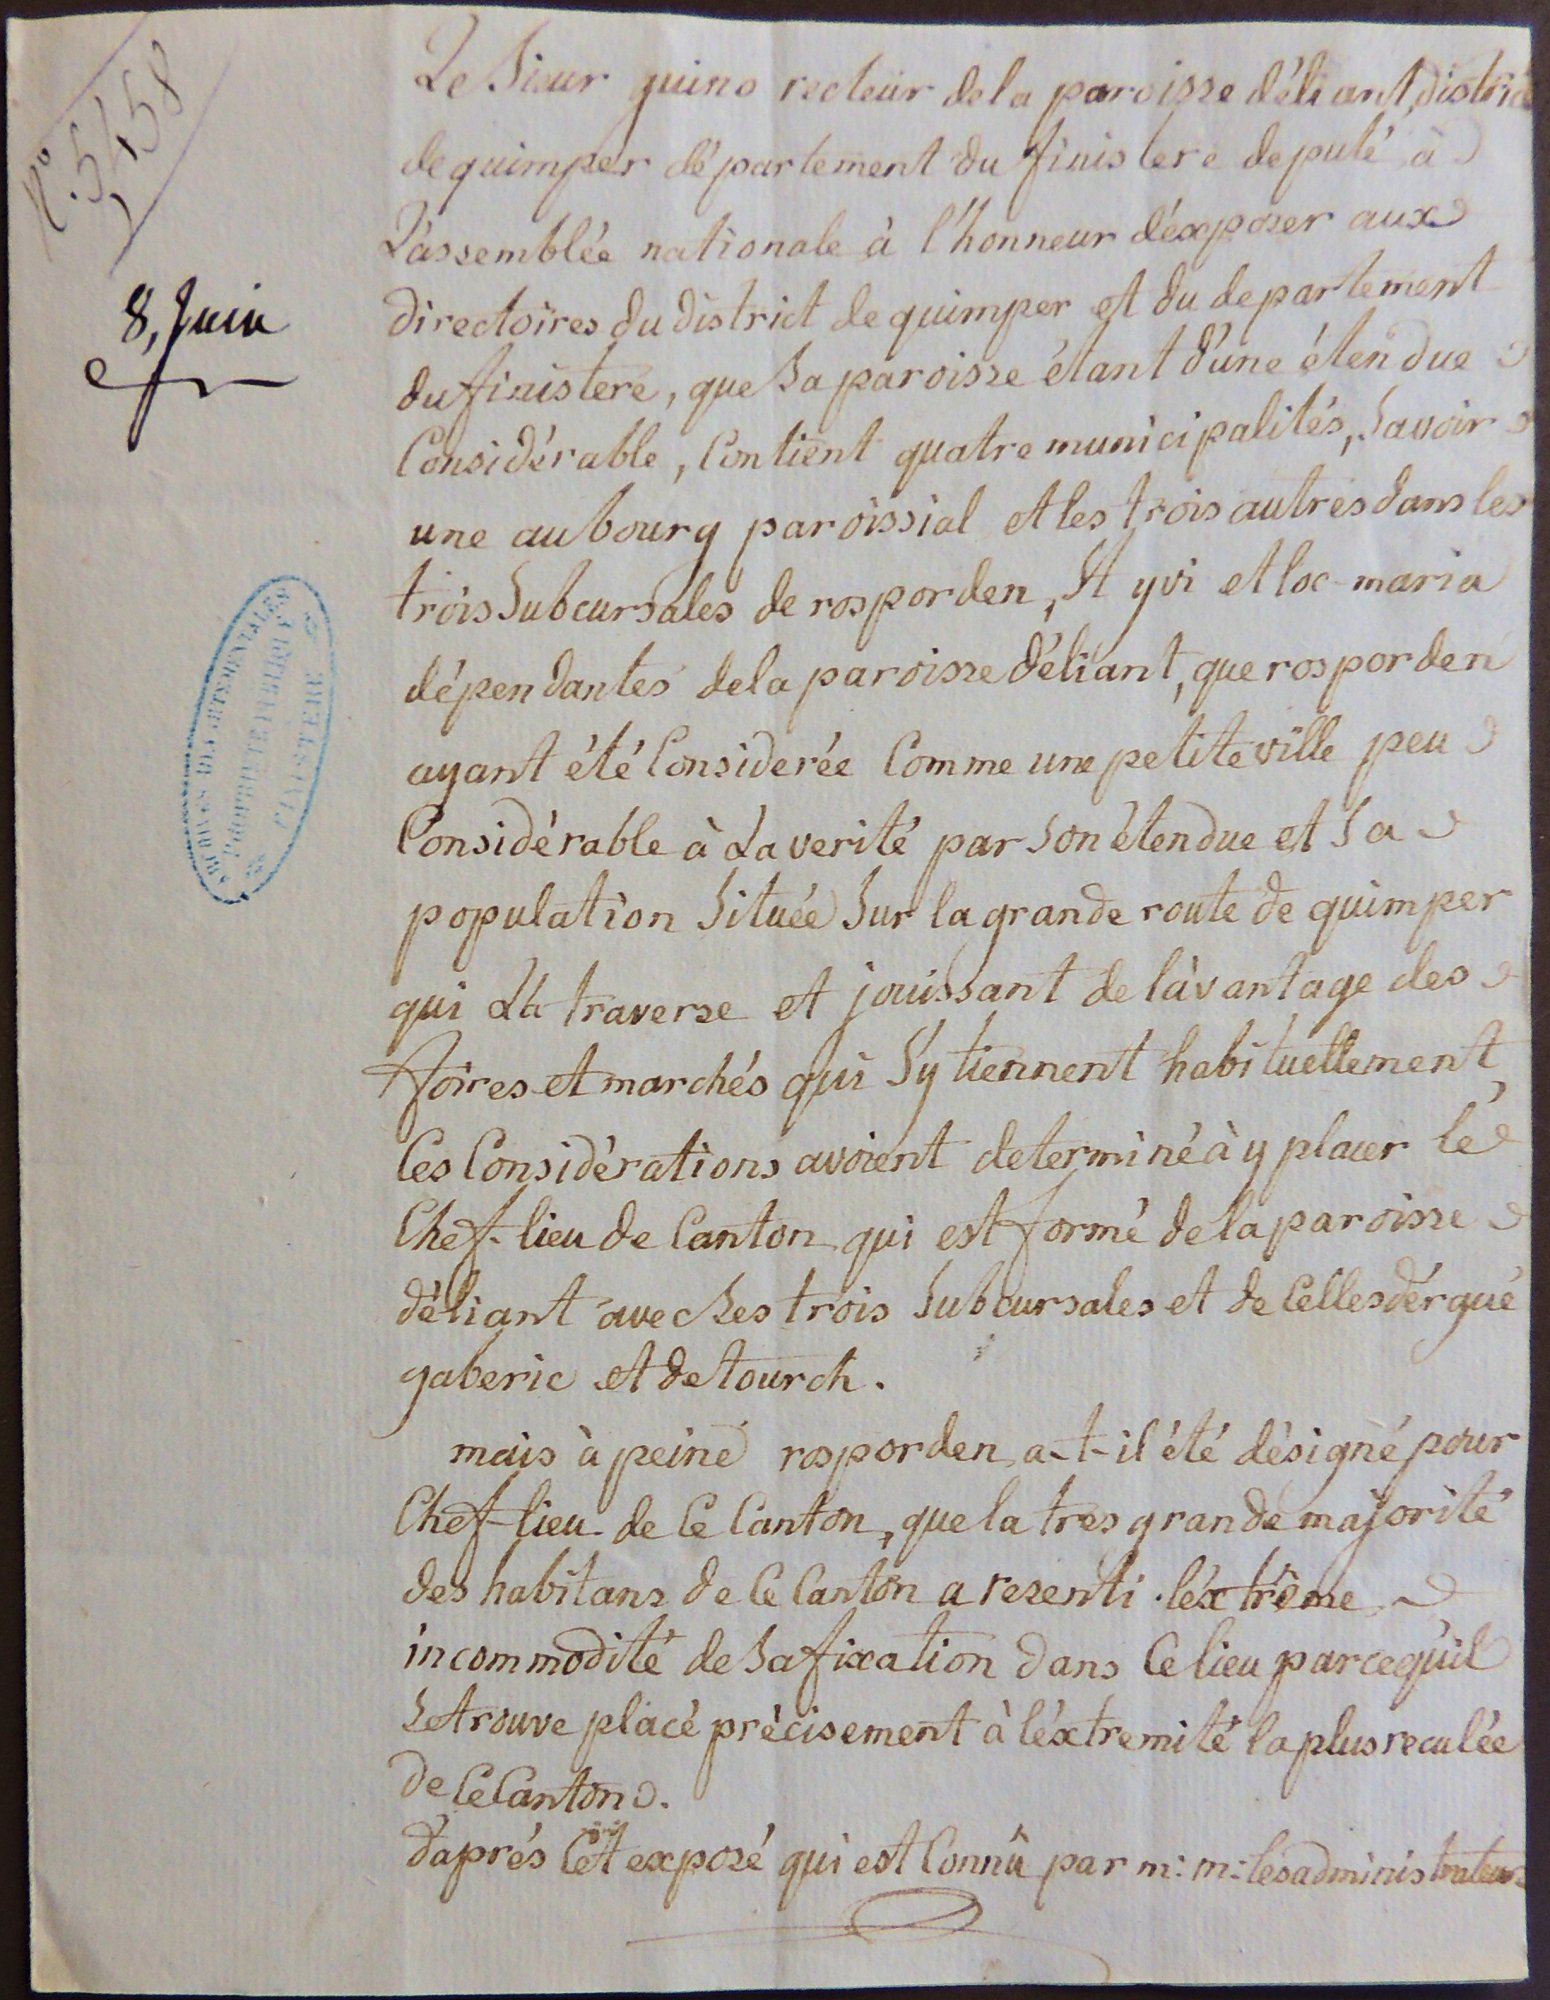 N.° 5458
8, Juin
Le Sieur guino recteur de la paroisse d'éliant, district
de quimper département du finistere deputé à
L'assemblée nationale à l'honneur d'éxposer aux
directoires du district de quimper et du departement
du finistere, que Sa paroisse étant d'une étendue
Considérable, Contient quatre municipalités, Savoir
une au bourg paroissial et les trois autres dans les
trois Subcursales de rosporden, St yvi et loc-maria
dépendantes de la paroisse d'éliant, que rosporden
ayant été Considerée Comme une petite ville peu
Considérable à La verité par Son étendue et Sa
population Située Sur la grande route de quimper
qui La traverse et jouissant de l'avantage des
foires et marchés qui S'y tiennent habituellement,
Ces Considérations avoient determiné à y placer le
Chef-lieu de Canton qui est formé de la paroisse
d'éliant avec Ses trois Subcursales et de Celles d'ergué
gaberic et de tourch.
mais à peine rosporden a-t-il été désigné pour
Chef-lieu de Ce Canton, que la tres grande majorité
des habitans de Ce Canton a resenti l'éxtrême
incommodité de Sa fixation dans Ce lieu parcequ'il
Se trouve placé précisement à l'éxtremité la plus reculée
de Ce Canton.
d'aprés Cet exposé qui est Connû par m: m: les administrateurs
ARCHIVES DÉPARTEMENTALES
PROPRIÉTÉ PUBLIQUE
FINISTERE